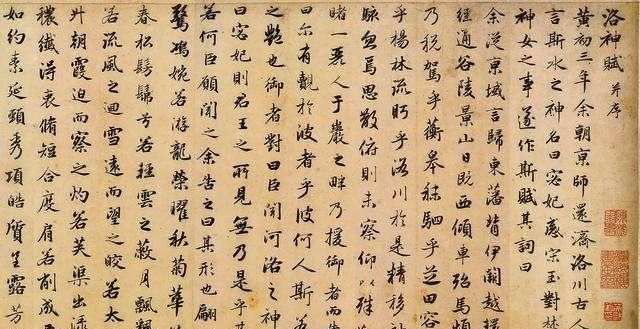 洛神賦 并序
黄初三年余朝京師還濟洛川古人
言斯水之神名曰宓妃感宋玉對
神女之事遂作斯賦其詞曰
余從京域言歸東藩背伊闕越
經通谷陵景山日既西傾車殆馬
乃税駕乎蘅皋秣駟乎芝田容
乎楊林流眄乎洛川於是精移
駭忽焉思散俯則未察仰以殊
睹一麗人于巖之畔乃援御者而
曰尔有覿於彼者乎彼何人斯
之豔也御者對曰臣聞河洛之神
曰宓妃則君王之所見無乃是乎其
若何臣願聞之余告之曰其形也翩
驚鴻婉若游龍榮曜秋菊華
春松髣髴兮若輕雲之蔽月飄
若流風之迴雪遠而望之皎若太
升朝霞迫而察之灼若芙渠出渌
穠纖得衷脩短合度肩若削成
如約素延頸秀項皓質呈露芳